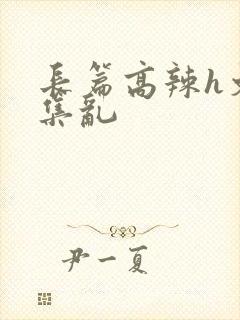 长篇高辣h文
集乱
尹一夏